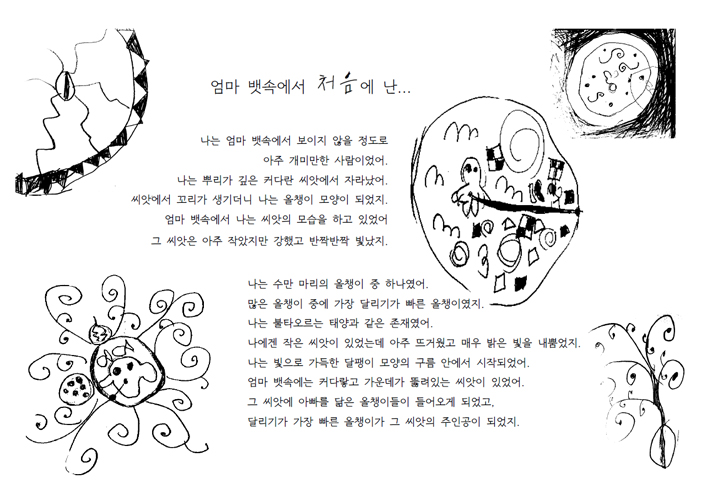 엄마 뱃속에서 처음에 난...
나는 엄마 뱃속에서 보이지 않을 정도로
아주 개미만한 사람이었어.
나는 뿌리가 깊은 커다란 씨앗에서 자라났어.
씨앗에서 꼬리가 생기더니 나는 올챙이 모양이 되었지.
엄마 뱃속에서 나는 씨앗의 모습을 하고 있었어
그 씨앗은 아주 작았지만 강했고 반짝반짝 빛났지.
나는 수만 마리의 올챙이 중 하나였어.
많은 올챙이 중에 가장 달리기가 빠른 올챙이였지.
나는 불타오르는 태양과 같은 존재였어.
나에겐 작은 씨앗이 있었는데 아주 뜨거웠고 매우 밝은 빛을 내뿜었지.
나는 빛으로 가득한 달팽이 모양의 구름 안에서 시작되었어.
엄마 뱃속에는 커다랗고 가운데가 뚫려있는 씨앗이 있었어.
그 씨앗에 아빠를 닮은 올챙이들이 들어오게 되었고,
달리기가 가장 빠른 올챙이가 그 씨앗의 주인공이 되었지.